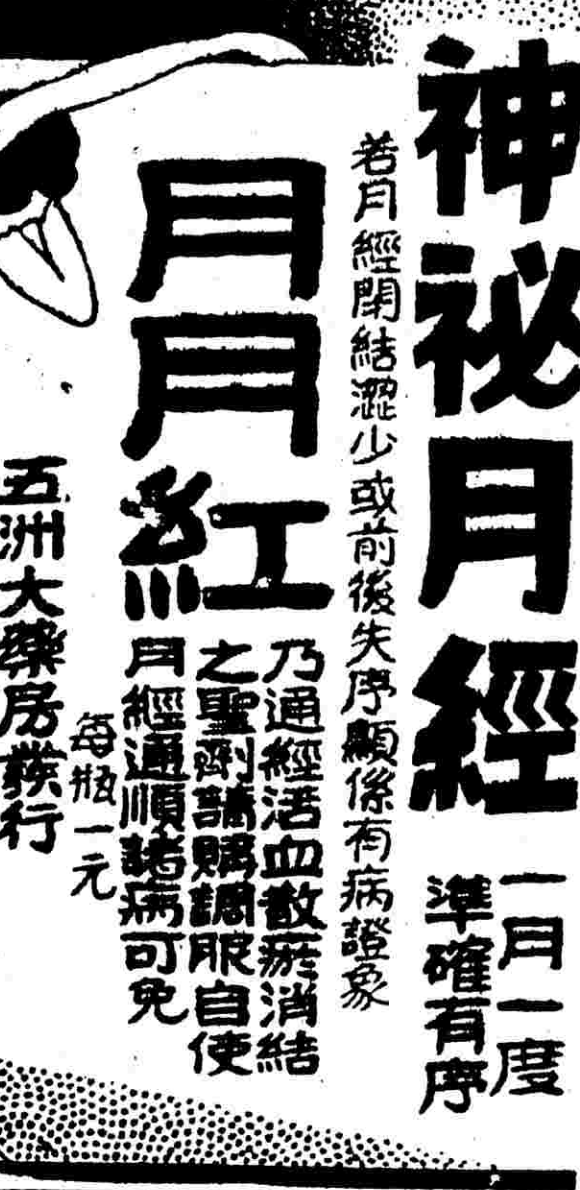 神祕月經
一月一度
準確有序
若月經閉結澀少或前後失序顯係有病證象
月月紅
乃通經活血散瘀消結
之聖劑請購調服自使
月經通順諸病可免
每瓶一元
五洲大藥房發行